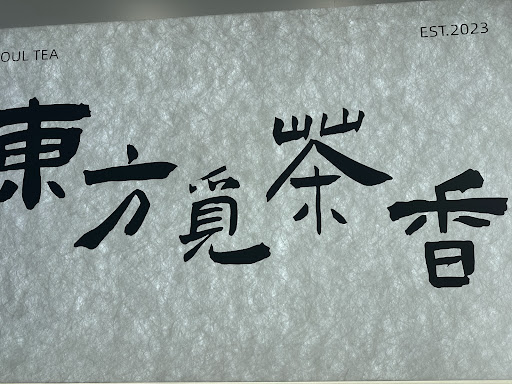 OUL TEA
EST.2023
東方覓茶香